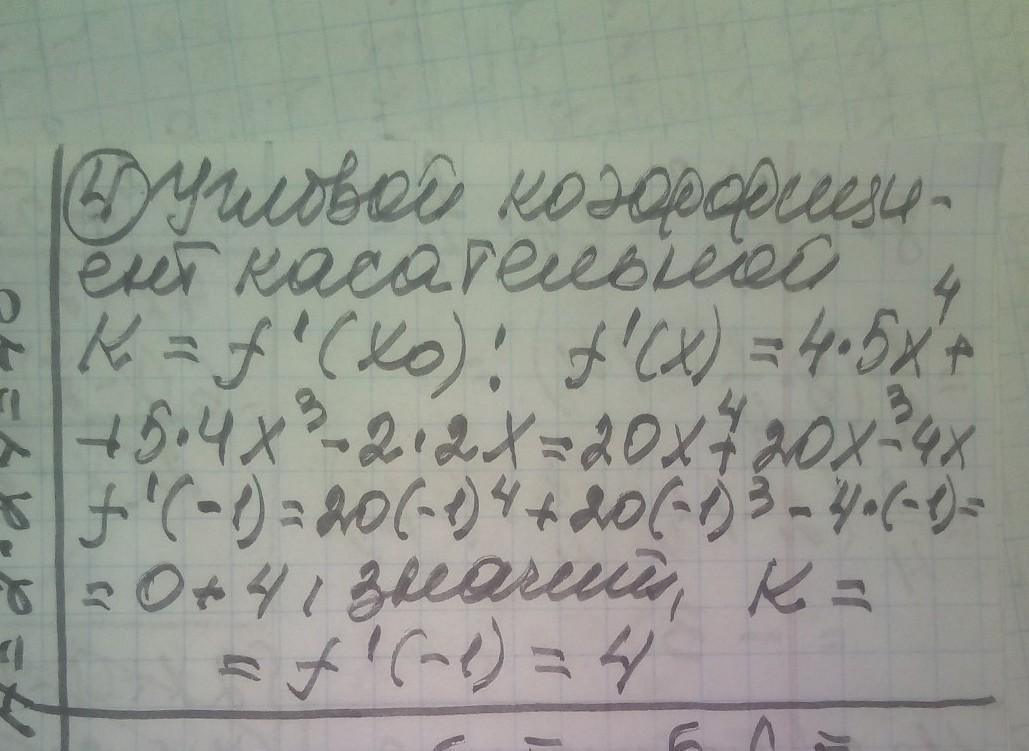 ④ Угловой коэффици-
ент касательной
K = f'(x₀); f'(x) = 4·5x⁴+
+5·4x³-2·2x=20x⁴+20x³-4x
f'(-1)=20(-1)⁴+20(-1)³-4·(-1)=
= 0+4, значит, K =
= f'(-1) = 4